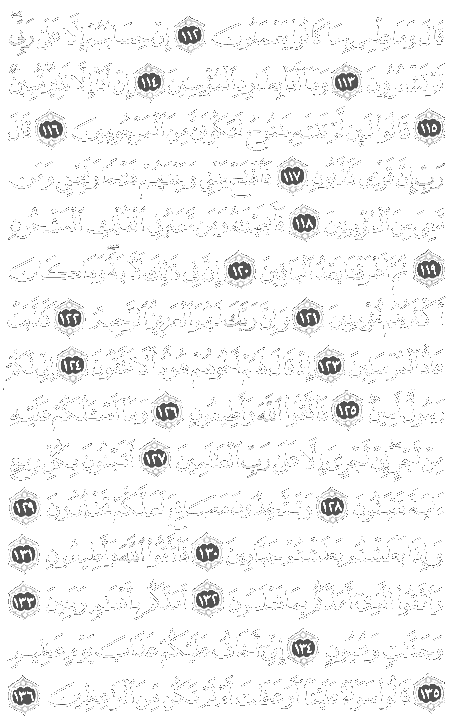 قَالَ وَمَا عِلْمِى بِمَا كَانُوا۟ يَعْمَلُونَ ١١٢ إِنْ حِسَابُهُمْ إِلَّا عَلَىٰ رَبِّى
لَوْ تَشْعُرُونَ ١١٣ وَمَآ أَنَا۠ بِطَارِدِ ٱلْمُؤْمِنِينَ ١١٤ إِنْ أَنَا۠ إِلَّا نَذِيرٌ مُّبِينٌ
١١٥ قَالُوا۟ لَئِن لَّمْ تَنتَهِ يَٰنُوحُ لَتَكُونَنَّ مِنَ ٱلْمَرْجُومِينَ ١١٦ قَالَ
رَبِّ إِنَّ قَوْمِى كَذَّبُونِ ١١٧ فَٱفْتَحْ بَيْنِى وَبَيْنَهُمْ فَتْحًا وَنَجِّنِى وَمَن
مَّعِىَ مِنَ ٱلْمُؤْمِنِينَ ١١٨ فَأَنجَيْنَٰهُ وَمَن مَّعَهُۥ فِى ٱلْفُلْكِ ٱلْمَشْحُونِ
١١٩ ثُمَّ أَغْرَقْنَا بَعْدُ ٱلْبَاقِينَ ١٢٠ إِنَّ فِى ذَٰلِكَ لَءَايَةً وَمَا كَانَ
أَكْثَرُهُم مُّؤْمِنِينَ ١٢١ وَإِنَّ رَبَّكَ لَهُوَ ٱلْعَزِيزُ ٱلرَّحِيمُ ١٢٢ كَذَّبَتْ
عَادٌ ٱلْمُرْسَلِينَ ١٢٣ إِذْ قَالَ لَهُمْ أَخُوهُمْ هُودٌ أَلَا تَتَّقُونَ ١٢٤ إِنِّى لَكُمْ
رَسُولٌ أَمِينٌ ١٢٥ فَٱتَّقُوا۟ ٱللَّهَ وَأَطِيعُونِ ١٢٦ وَمَآ أَسْـَٔلُكُمْ عَلَيْهِ
مِنْ أَجْرٍ إِنْ أَجْرِىَ إِلَّا عَلَىٰ رَبِّ ٱلْعَٰلَمِينَ ١٢٧ أَتَبْنُونَ بِكُلِّ رِيعٍ
ءَايَةً تَعْبَثُونَ ١٢٨ وَتَتَّخِذُونَ مَصَانِعَ لَعَلَّكُمْ تَخْلُدُونَ ١٢٩
وَإِذَا بَطَشْتُم بَطَشْتُمْ جَبَّارِينَ ١٣٠ فَٱتَّقُوا۟ ٱللَّهَ وَأَطِيعُونِ ١٣١
وَٱتَّقُوا۟ ٱلَّذِىٓ أَمَدَّكُم بِمَا تَعْلَمُونَ ١٣٢ أَمَدَّكُم بِأَنْعَٰمٍ وَبَنِينَ ١٣٣
وَجَنَّٰتٍ وَعُيُونٍ ١٣٤ إِنِّىٓ أَخَافُ عَلَيْكُمْ عَذَابَ يَوْمٍ عَظِيمٍ
١٣٥ قَالُوا۟ سَوَآءٌ عَلَيْنَآ أَوَعَظْتَ أَمْ لَمْ تَكُن مِّنَ ٱلْوَٰعِظِينَ ١٣٦